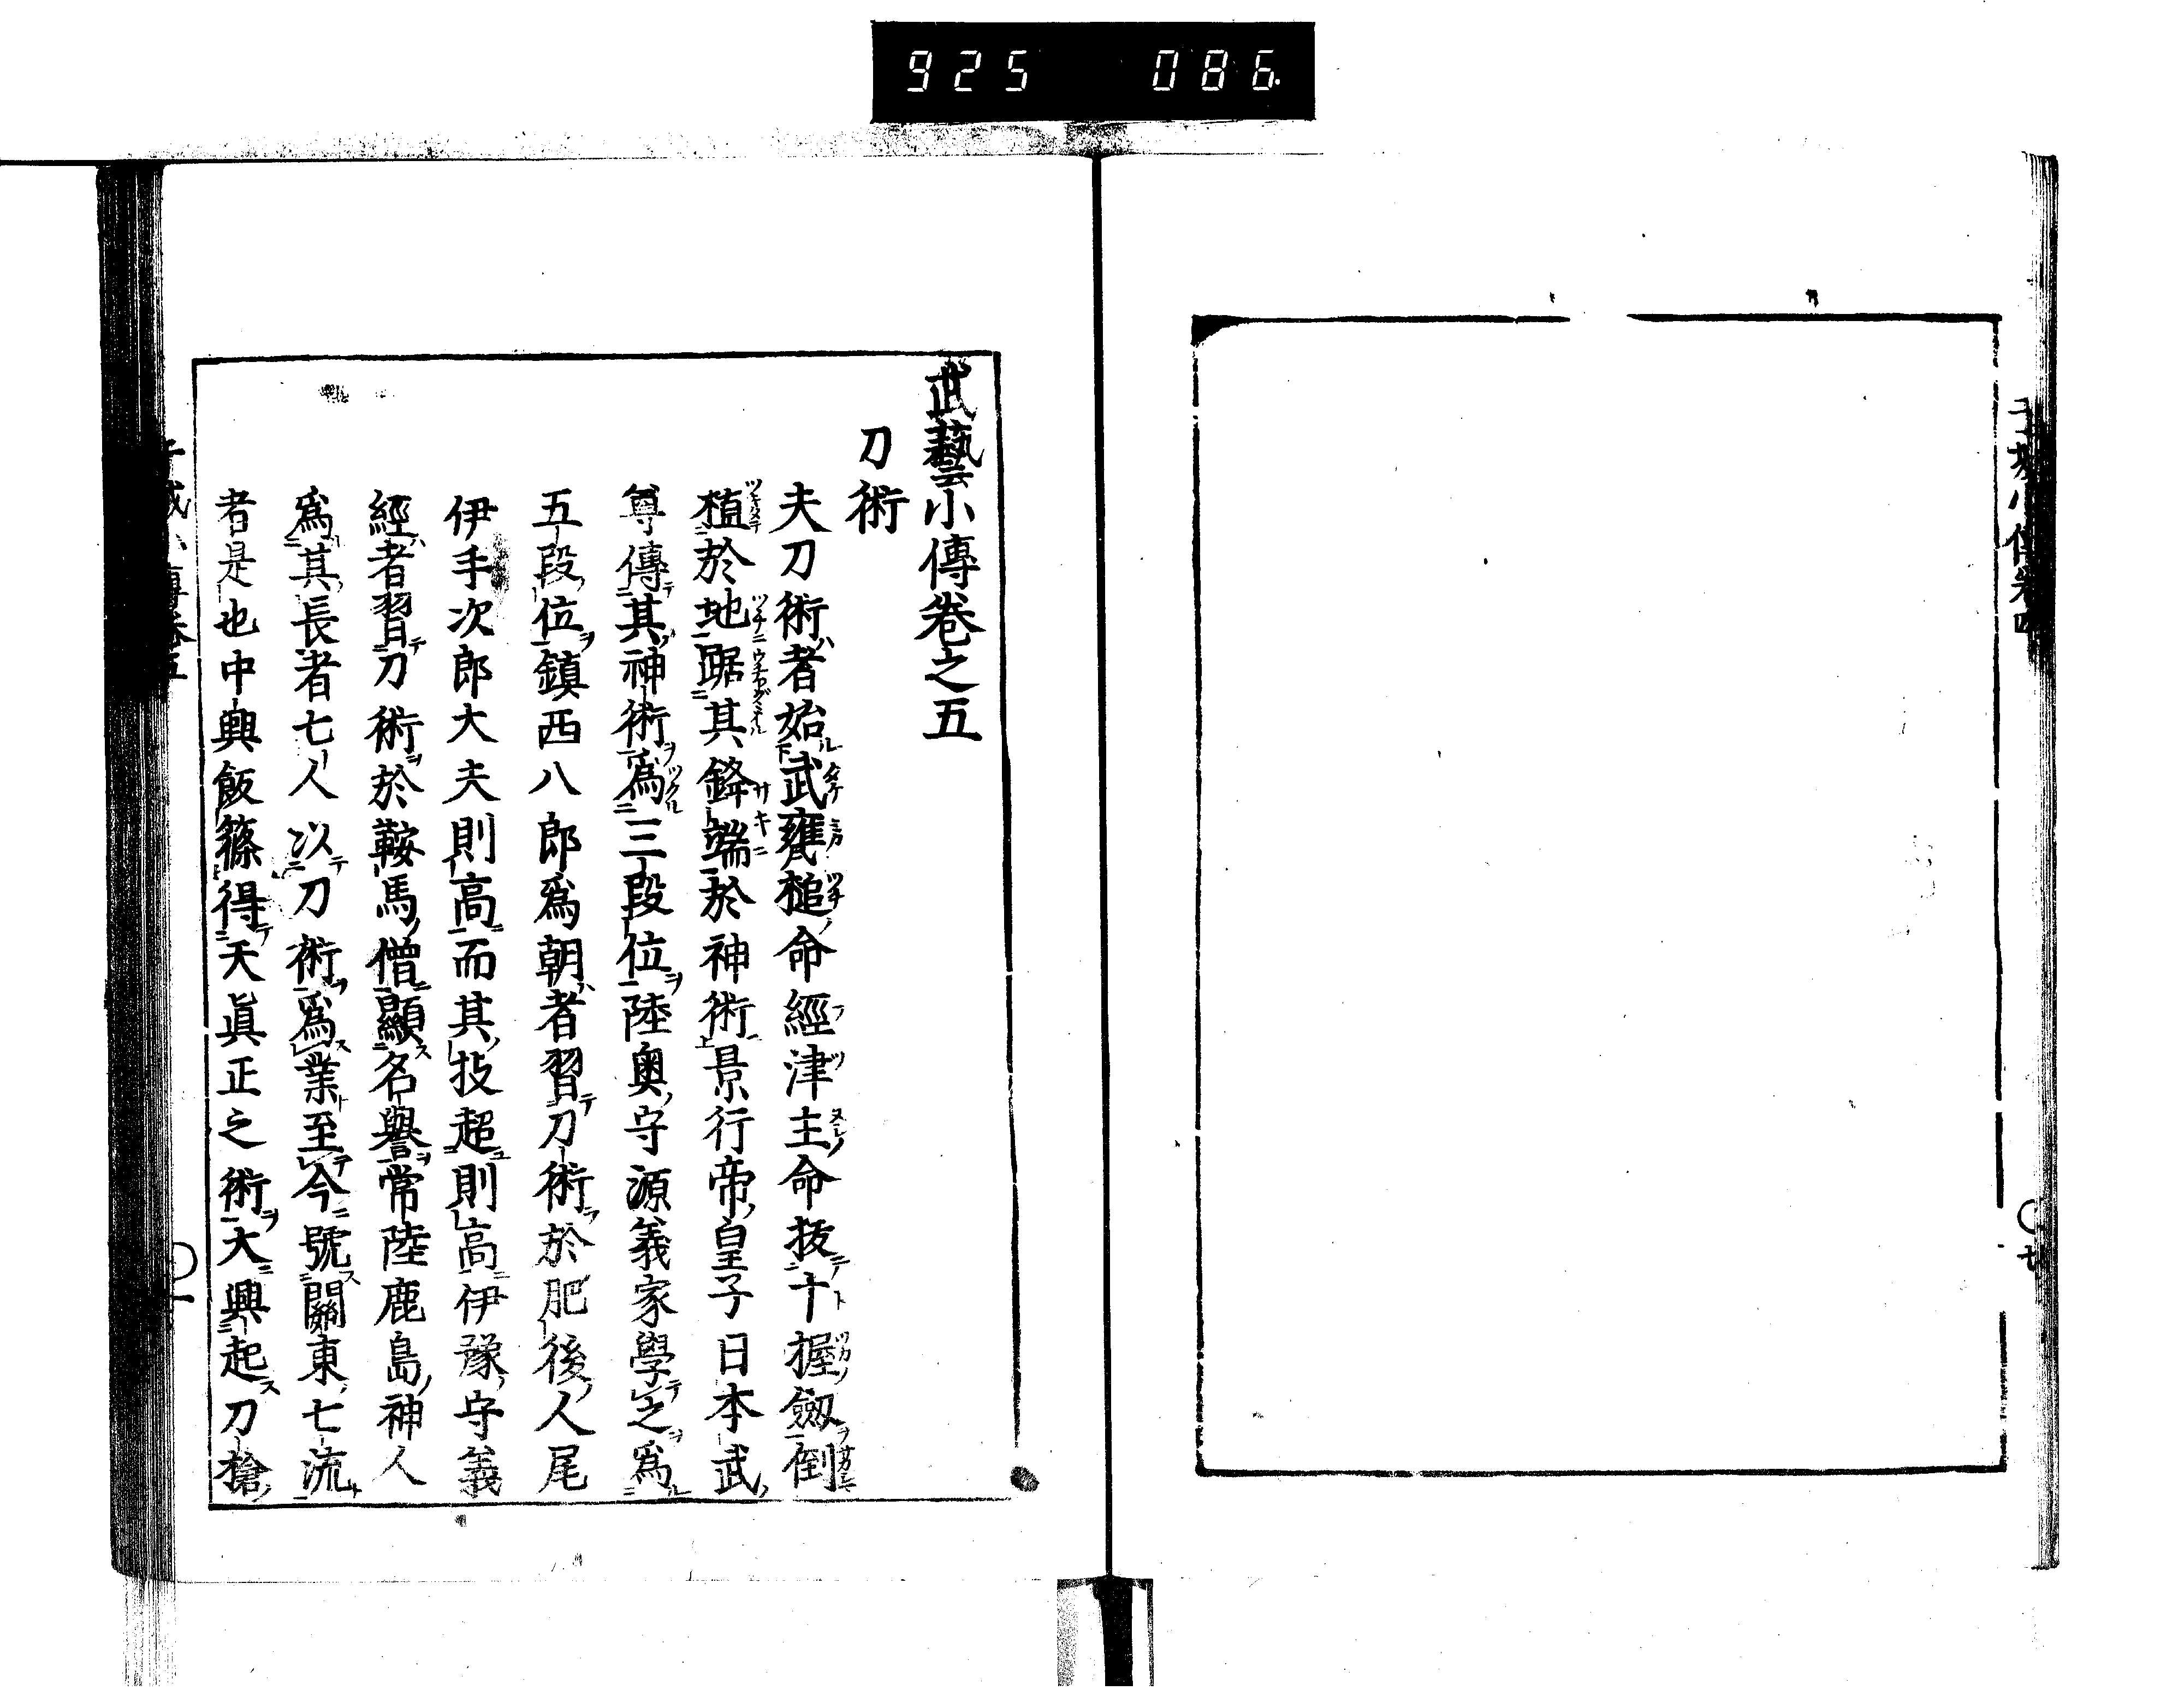 925 086
武藝小傳卷之五
刀術
夫刀術者始武甕槌命經津主命拔十握劔倒
植於地踞其鋒端於神術景行帝皇子日本武
尊傳其神術爲三段位陸奥守源義家學之爲
五段位鎮西八郎爲朝者習刀術於肥後人尾
伊手次郎大夫則高而其技超則高伊豫守義
經者習刀術於鞍馬僧顯名譽常陸鹿島神人
爲其長者七人以刀術爲業至今號關東七流
者是也中興飯篠得天眞正之術大興起刀槍